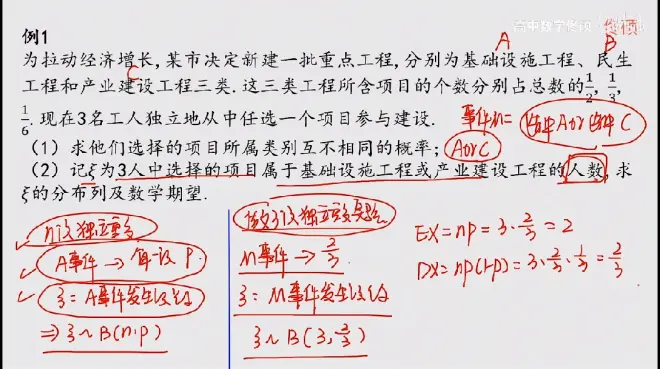 高中数学修顿
例1
A
B
为拉动经济增长,某市决定新建一批重点工程,分别为基础设施工程、民生
C
工程和产业建设工程三类.这三类工程所含项目的个数分别占总数的1/2, 1/3,
1/6.现在3名工人独立地从中任选一个项目参与建设.
事件M=选中A or 选中C
(1)求他们选择的项目所属类别互不相同的概率;
A or C
(2)记ξ为3人中选择的项目属于基础设施工程或产业建设工程的人数,求
ξ的分布列及数学期望.
n次独立重复
A事件→每一次P.
ξ=A事件发生次数
⇒ξ~B(n,p)
做3次独立重复实验
M事件→2/3
ξ=M事件发生次数
ξ~B(3,2/3)
EX=np=3·2/3=2
DX=np(1-p)=3·2/3·1/3=2/3